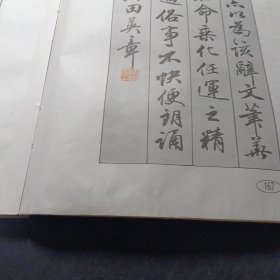 以為該辭文筆
命乘化任運之精
遇俗事不快便朗誦
田英章
167